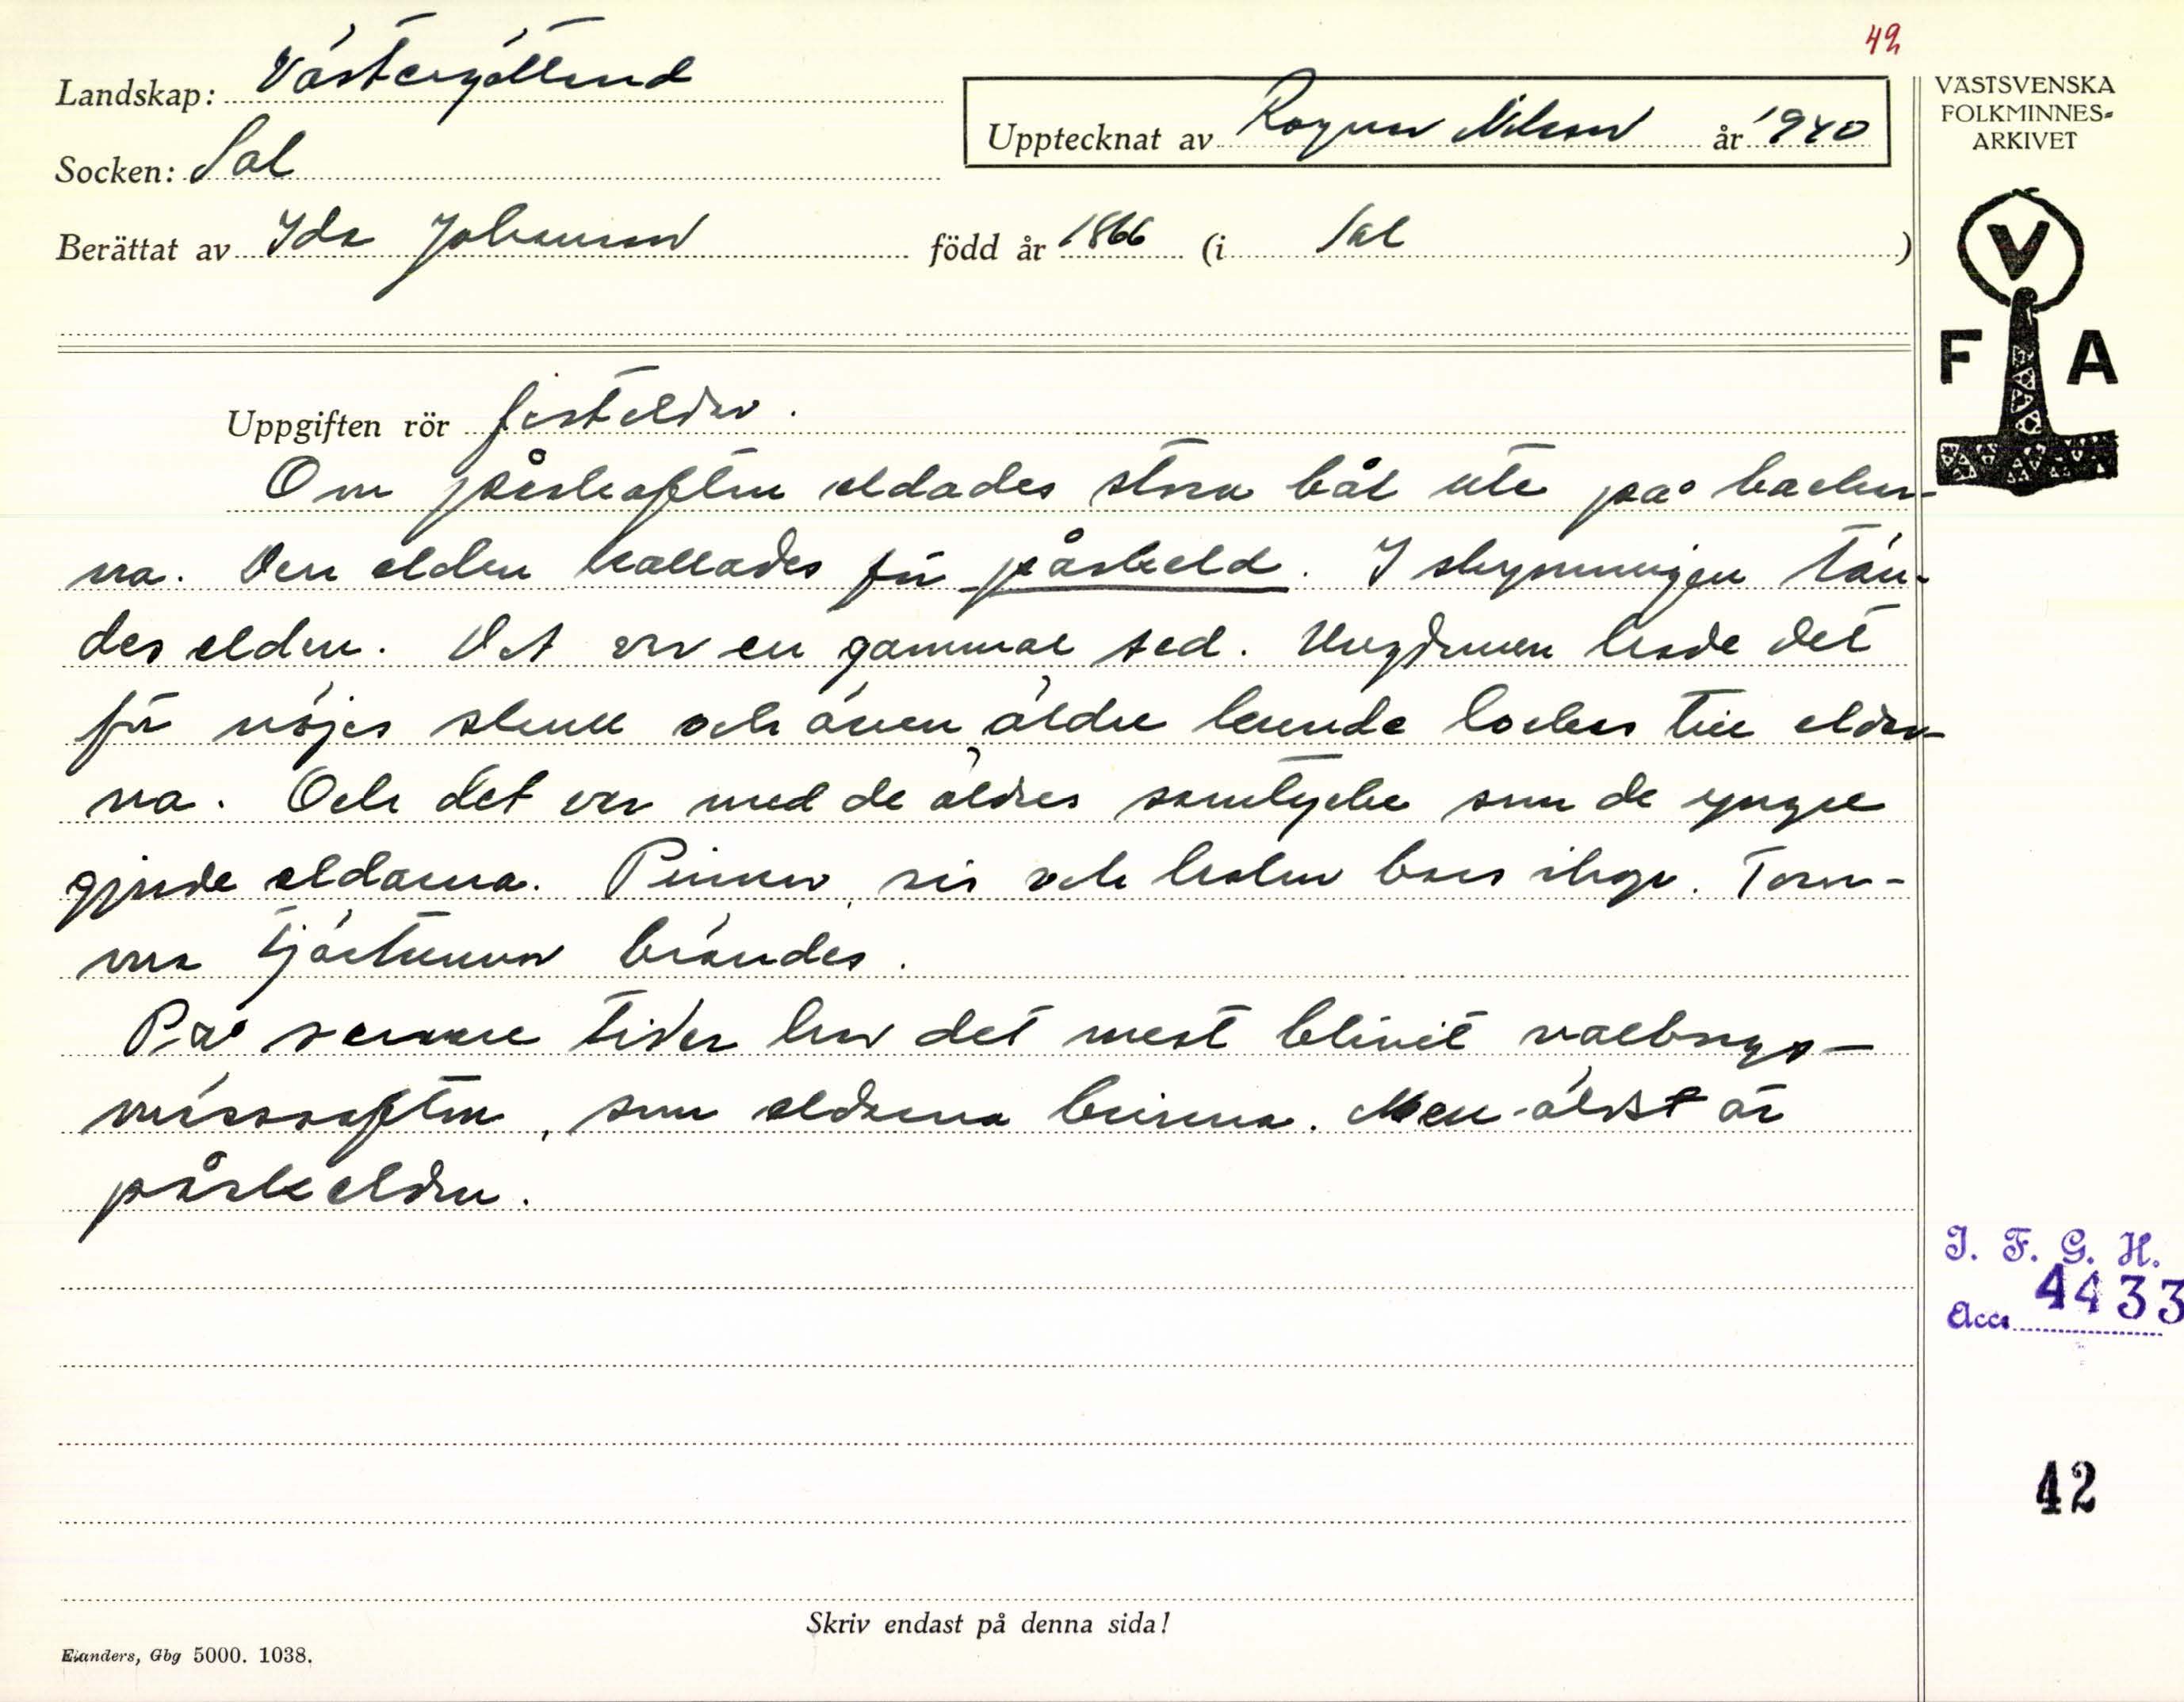 42
Landskap: Västergötland
Upptecknat av Ragnar Nilsson år 1940
Socken: Sal
Berättat av Ida Johansson född år 1866 (i Sal)
VÄSTSVENSKA
FOLKMINNES-
ARKIVET
V
F A
Uppgiften rör festeldar.
Om påskafton eldades stora bål ute på backar-
na. Den elden kallades för påskeld. I skymningen tän-
des elden. Det var en gammal sed. Ungdomen hade det
för nöjes skull och även äldre kunde lockas till eldar-
na. Och det var med de äldres samtycke som de yngre
gjorde eldarna. Pinnar, ris och halm bars ihop. Tom-
ma tjärtunnor brändes.
På senare tider har det mest blivit valborgs-
mässoafton, som eldarna brinna. Men äldst är
påskelden.
I. F. G. H.
Acc. 4433
42
Skriv endast på denna sida!
Elanders, Gbg 5000. 1038.